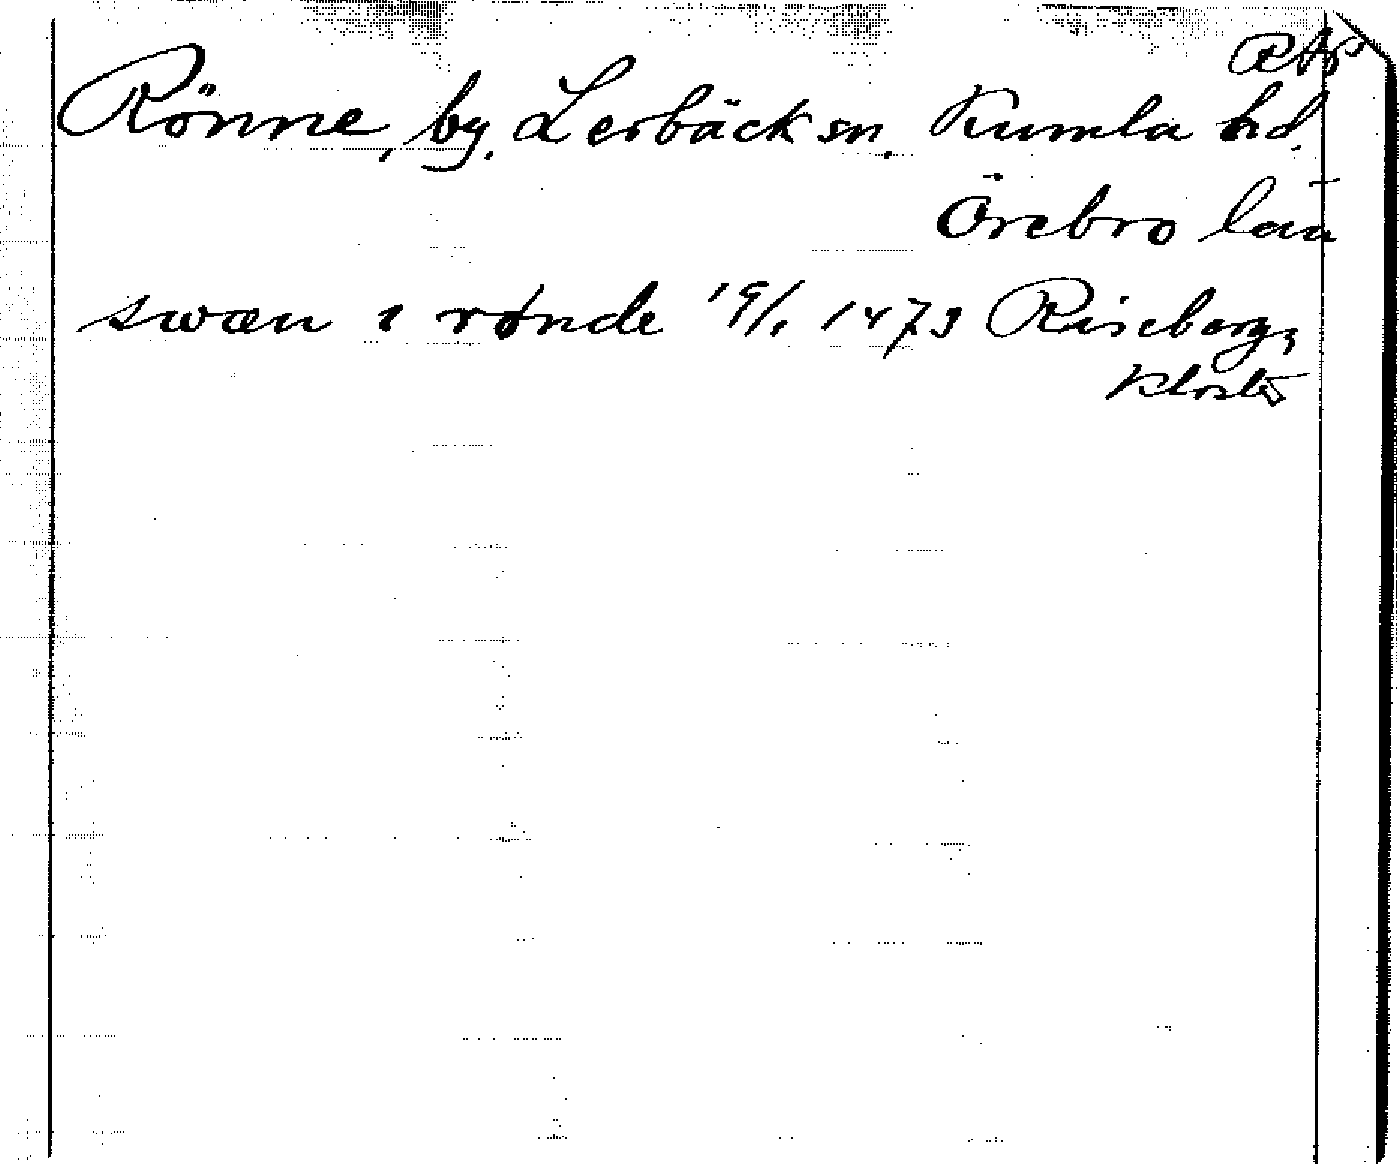 RAP
Rönne, by, Lerbäck sn. Kumla hd.
Örebro län
swæn i rønde 19/1 1473 Riseberga
kloster